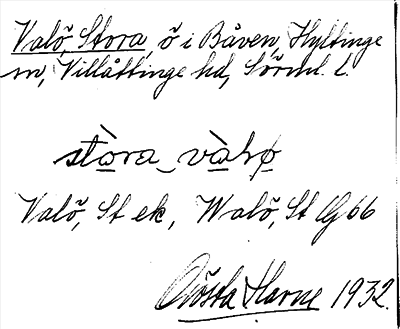 Valö, Stora, ö i Båven, Hyltinge
sn, Villåttinge hd, Sörml. l.
stὰra_vὰlø
Valö, St ek, Walö, St Gj 66
Gösta Harne 1932.